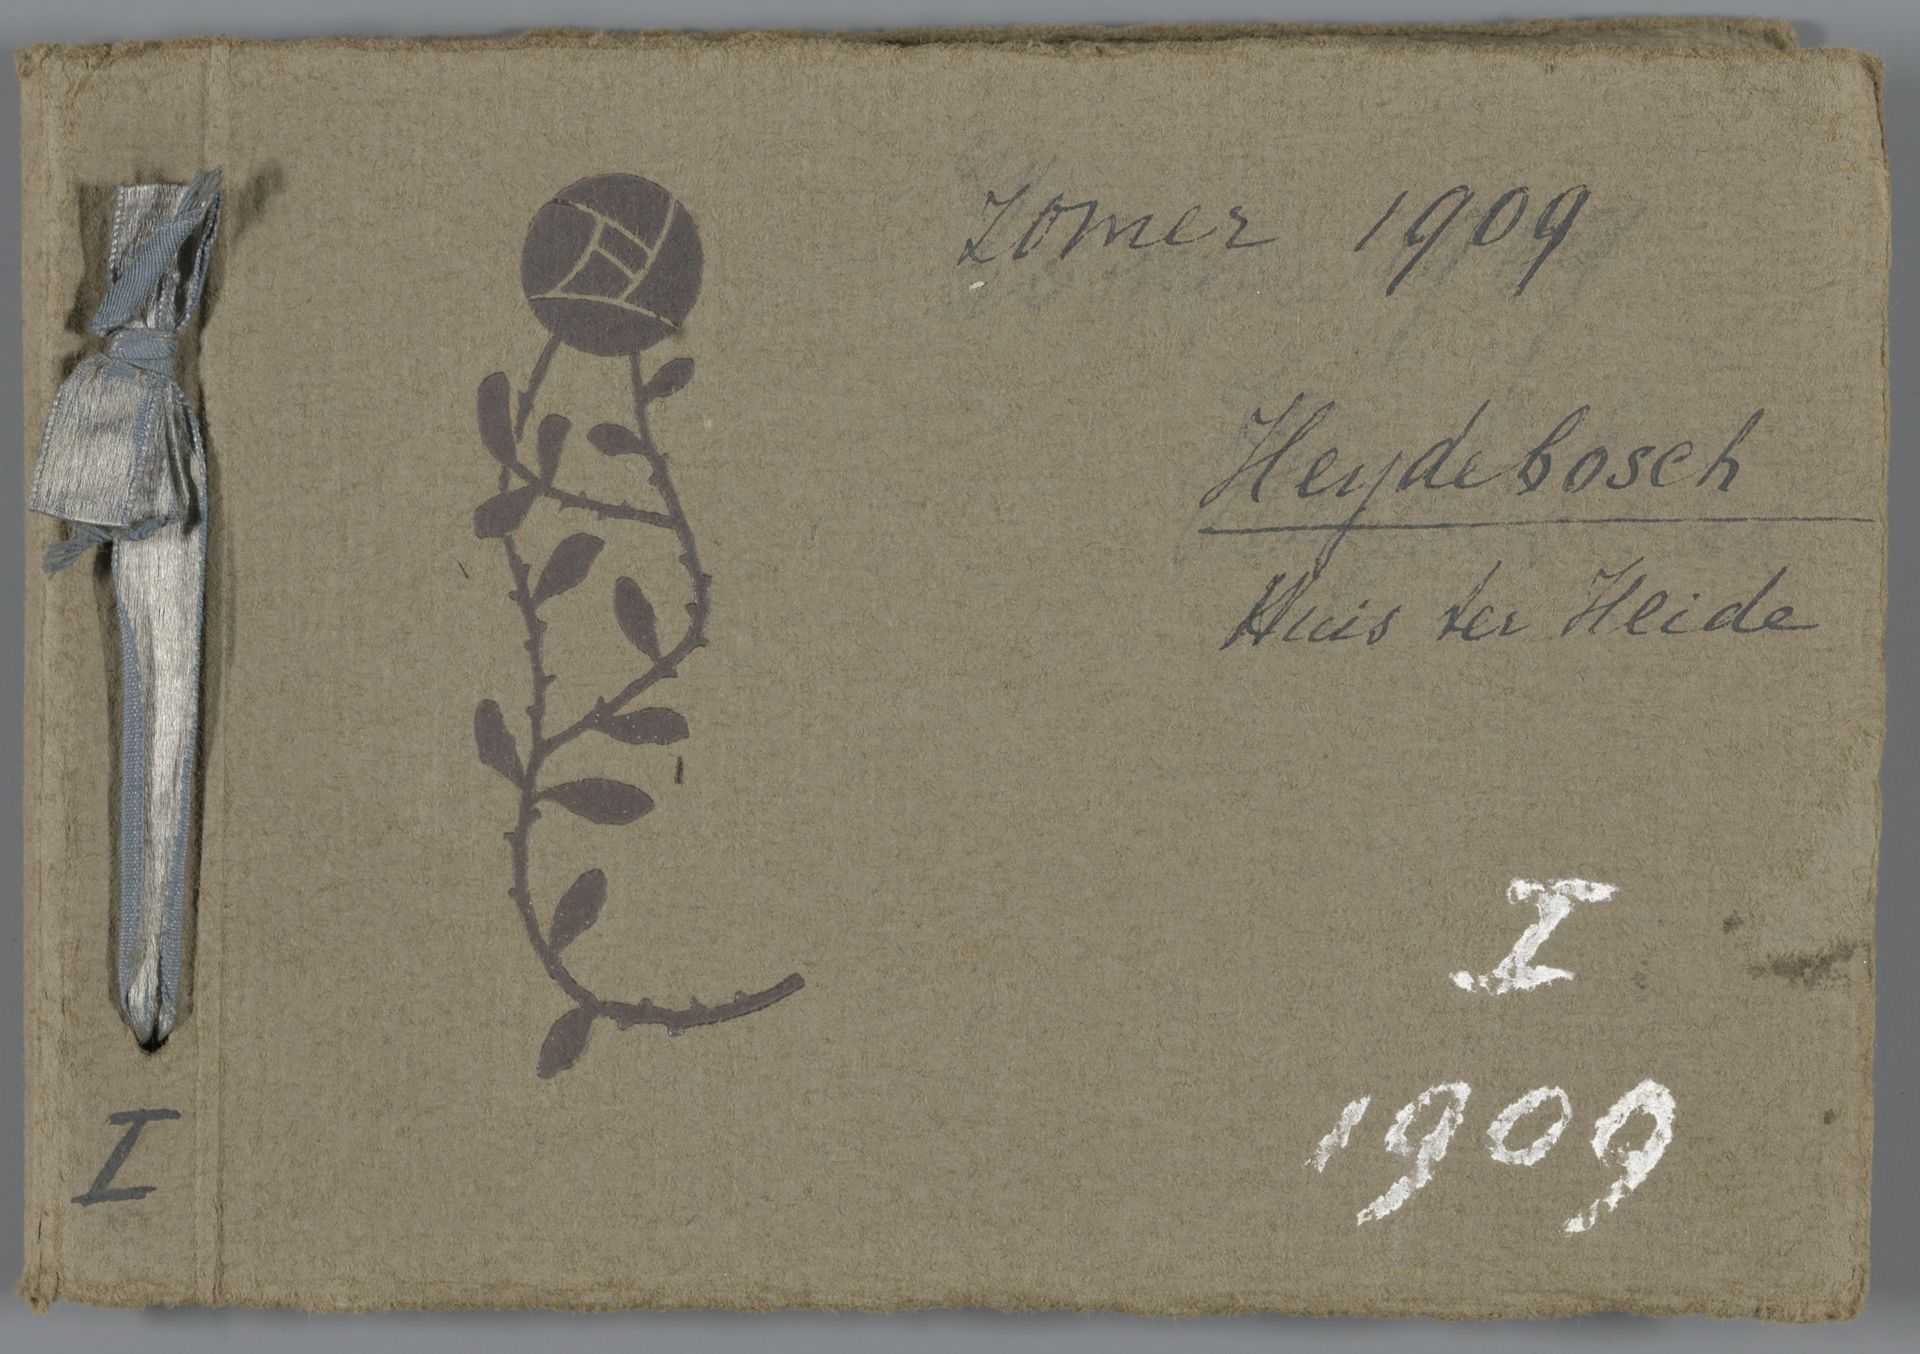 Zomer 1909
Heydebosch
Huis ter Heide
I
1909
I